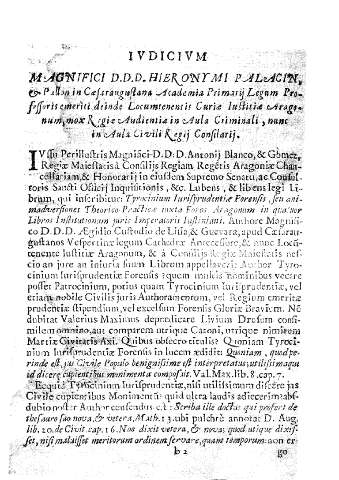 IVDICIVM
MAGNIFICI D.D.D. HIERONYMI PALACIN,
& in Cæsaraugustana Academia Primarij Legum Pro-
fessoris emeriti, deinde Locumtenentis Curiæ Iustitiæ Arago-
num, mox Regiæ Audientiæ in Aula Criminali, nunc
in Aula Civili Regij Consiliarij.
IVssu Perillustris Magnifici D.D.D. Antonij Blanco, & Gomez,
Regiæ Maiestatis à Consilijs Regiam Regëtis Aragoniæ Chan-
cellariam, & Honorarij in eiusdem Supremo Senatu, ac Consul-
toris Sancti Officij Inquisitionis, &c. Lubens, & libens legi Li-
brum, qui inscribitur: Tyrocinium Iurisprudentiæ Forensis, seu ani-
madversiones Theorico Practicæ iuxta Foros Aragonum in quatuor
Libros Institutionum iuris Imperatoris Iustiniani. Authore Magnifi-
co D.D.D. Ægidio Custodio de Lisa, & Guevara, apud Cæsarau-
gustanos Vespertinæ legum Cathedræ Antecessore, & nunc Locũ-
tenente Iustitiæ Aragonum, & à Consilijs Regiæ Maiestatis nes-
cio an iure an iniuria suum Librum appellaverit Author Tyro-
cinium Iurisprudentiæ Forensis: quem multis nominibus vocare
posset Patrocinium, potius quam Tyrocinium Iurisprudentiæ, vel
etiam nobile Civilis juris Authoramentum, vel Regium emeritæ
prudentiæ stipendium, vel excelsum Forensis Gloriæ Bravium. Nè
dubitat Valerius Maximus deprædicare Livium Drusum consi-
milem omnino, aut comparem utrique Catoni, utrique nimirum
Martiæ Civitatis Axi. Quibus obsecro titulis? Quoniam Tyroci-
nium Iurisprudentiæ Forensis in lucem ædidit: Quoniam, quod pe-
rinde est, jus Civile Populo benignissime est interpretatus, utilissimaque
id discere cupientibus monimenta composuit. Val. Max. lib. 8. cap. 7.
Ecquid Tyrocinium Iurisprudentiæ, nisi utilissimum discere jus
Civile cupientibus Monimentũ? quid ultra laudis adijcerim? abs-
dubio noster Author censendus est: Scriba ille doctus qui profert de
thesauro suo nova, & vetera, Math. 13. ubi pulchrè annotat D. Aug.
lib. 20. de Civit. cap. 16. Non dixit vetera, & nova, quod utique dixis-
set, nisi maluisset meritorum ordinem servare, quam temporum: non er-
b 2
go